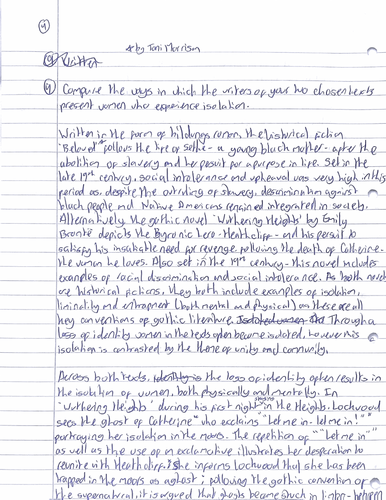 4
* by Toni Morrison
9 Compare the ways in which the writers of your two chosen texts
present women who experience isolation.
Written in the form of bildungsroman, the historical fiction
'Beloved'* follows the life of Sethe - a young black mother - after the
abolition of slavery and her pursuit for a purpose in life. Set in the
late 19th century, social intolerance and upheaval was very high in this
period as, despite the outruling of slavery, descrimination against
black people and Native Americans remained integrated in society.
Alternatively the gothic novel 'Wuthering Heights' by Emily
Brontë depicts the Byronic hero - Heathcliff - and his persuit to
satisfy his insatiable need for revenge following the death of Catherine -
the woman he loves. Also set in the 19th century - this novel includes
examples of racial discrimination and social intolerance. As both novels
are historical fictions, they both include examples of isolation,
liminality and entrapment (both mental and physical) as these are all
key conventions of gothic literature. Isolated women Through a
loss of identity women in the texts often become isolated, however this
isolation is contrasted by the theme of unity and community.
Across both texts, identity is the loss of identity often results in
the isolation of women, both physically and mentally. In
'Wuthering Heights' during his first night staying in the Heights, Lockwood
sees the ghost of Catherine who exclaims "Let me in - let me in!"
portraying her isolation in the moors. The repetition of "Let me in"
as well as the use of an exclamative illustrates her desparation to
reunite with Heathcliff. She informs Lockwood that she has been
trapped in the moors as a ghost; following the gothic convention of
the supernatural, it is argued that ghosts became stuck in limbo - between